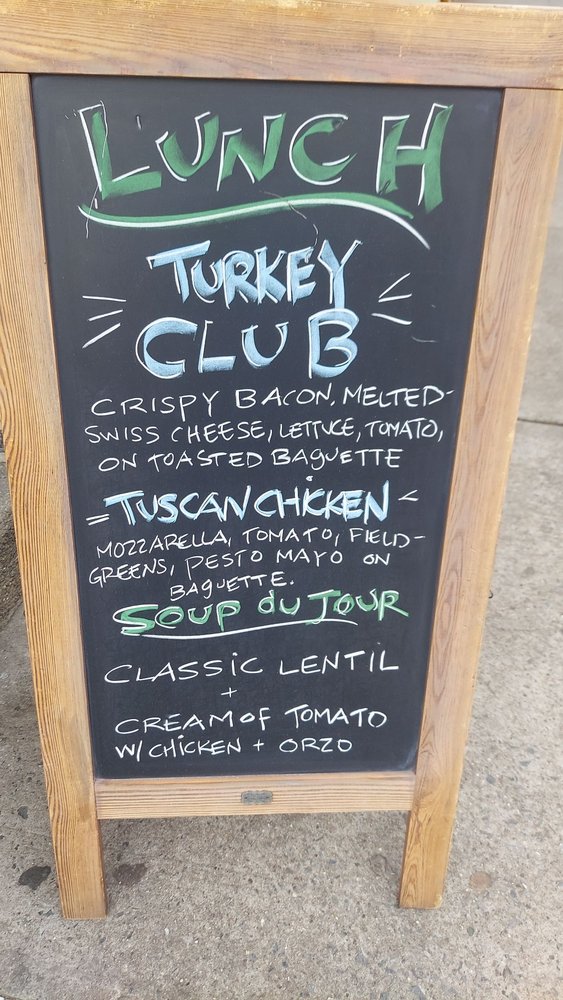 LUNCH
TURKEY
CLUB
CRISPY BACON, MELTED-
SWISS CHEESE, LETTUCE, TOMATO,
ON TOASTED BAGUETTE
TUSCAN CHICKEN
MOZZARELLA, TOMATO, FIELD-
GREENS, PESTO MAYO ON
BAGUETTE.
SOUP du JOUR
CLASSIC LENTIL
+
CREAM OF TOMATO
W/ CHICKEN + ORZO